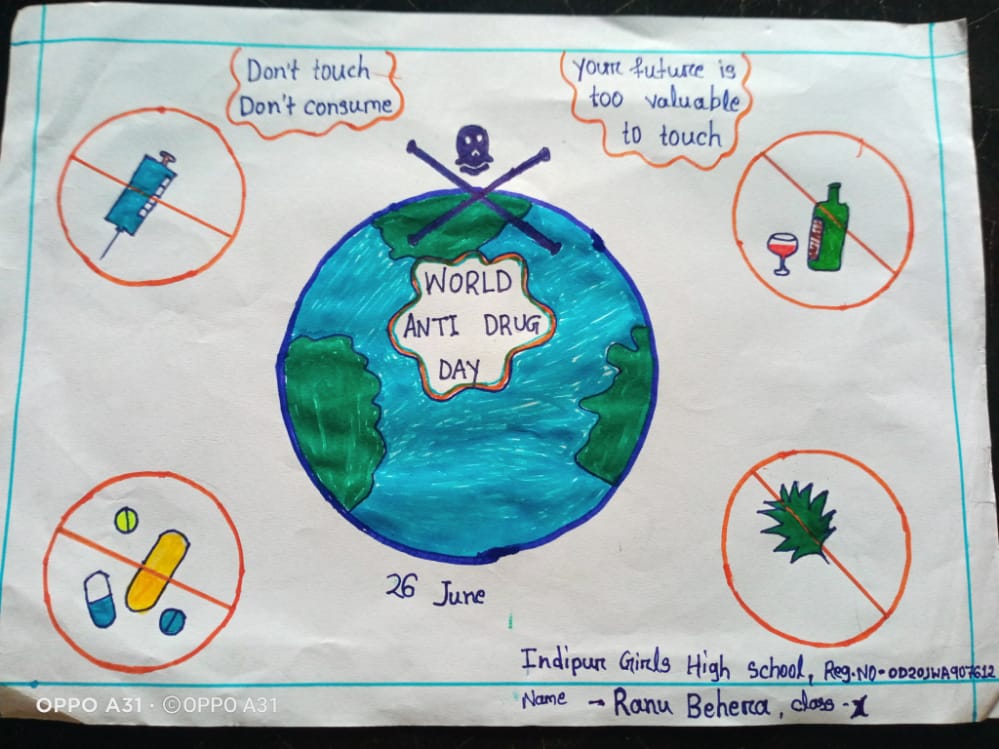 Don't touch
Don't consume
your future is
too valuable
to touch
WORLD
ANTI DRUG
DAY
26 June
Indipur Girls High school, Reg.NO-OD20JWA907612
Name → Ranu Behera, class-X
OPPO A31 · ©OPPO A31